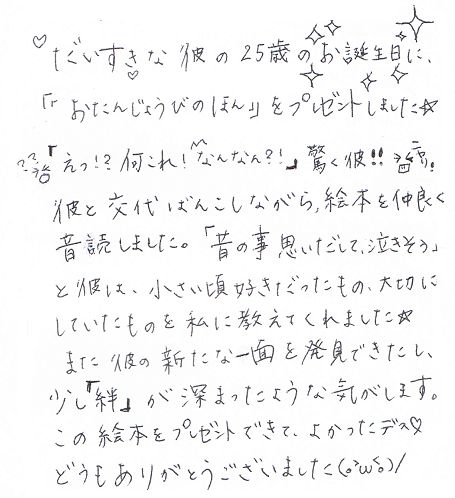 ♡だいすきな彼の25歳のお誕生日に、
「『おたんじょうびのほん』」をプレゼントしました☆
??「えっ!?何これ!なんなん?!」驚く彼!!
彼と交代ばんこしながら、絵本を仲良く
音読しました。「昔の事思いだして、泣きそう」
と彼は、小さい頃好きだったもの、大切に
していたものを私に教えてくれました☆
また彼の新たな一面を発見できたし、
少し『絆』が深まったような気がします。
この絵本をプレゼントできて、よかったデス♡
どうもありがとうございました(。°ω°。)/